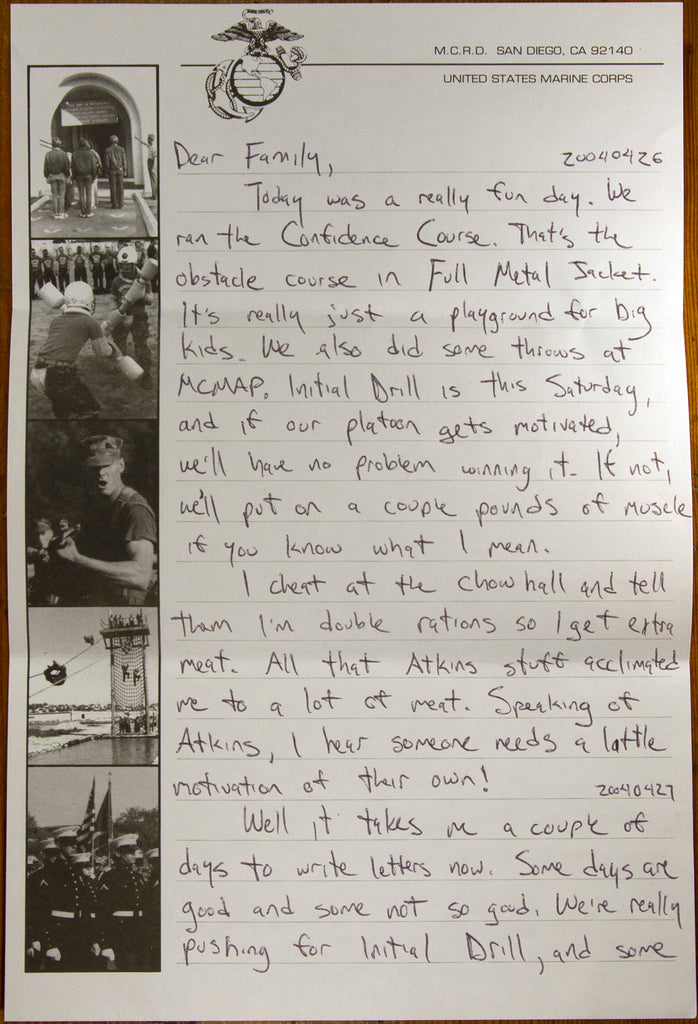 M.C.R.D. SAN DIEGO, CA 92140
UNITED STATES MARINE CORPS
Dear Family, 20040426
Today was a really fun day. We
ran the Confidence Course. That's the
obstacle course in Full Metal Jacket.
It's really just a playground for big
kids. We also did some throws at
MCMAP. Initial Drill is this Saturday,
and if our platoon gets motivated,
we'll have no problem winning it. If not,
we'll put on a couple pounds of muscle
if you know what I mean.
I cheat at the chow hall and tell
them I'm double rations so I get extra
meat. All that Atkins stuff acclimated
me to a lot of meat. Speaking of
Atkins, I hear someone needs a little
motivation of their own!
20040427
Well it takes me a couple of
days to write letters now. Some days are
good and some not so good. We're really
pushing for Initial Drill, and some